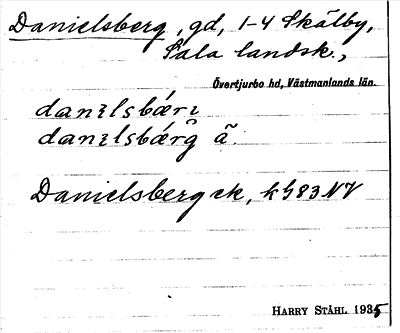 Danielsberg, gd, 1-4 Skälby,
Sala landsk.,
Övertjurbo hd, Västmanlands län.
danɩlsbǽrɩ̥
danɩlsbǽrg ã
Danielsberg ek, k 583 NV
HARRY STÅHL 1935